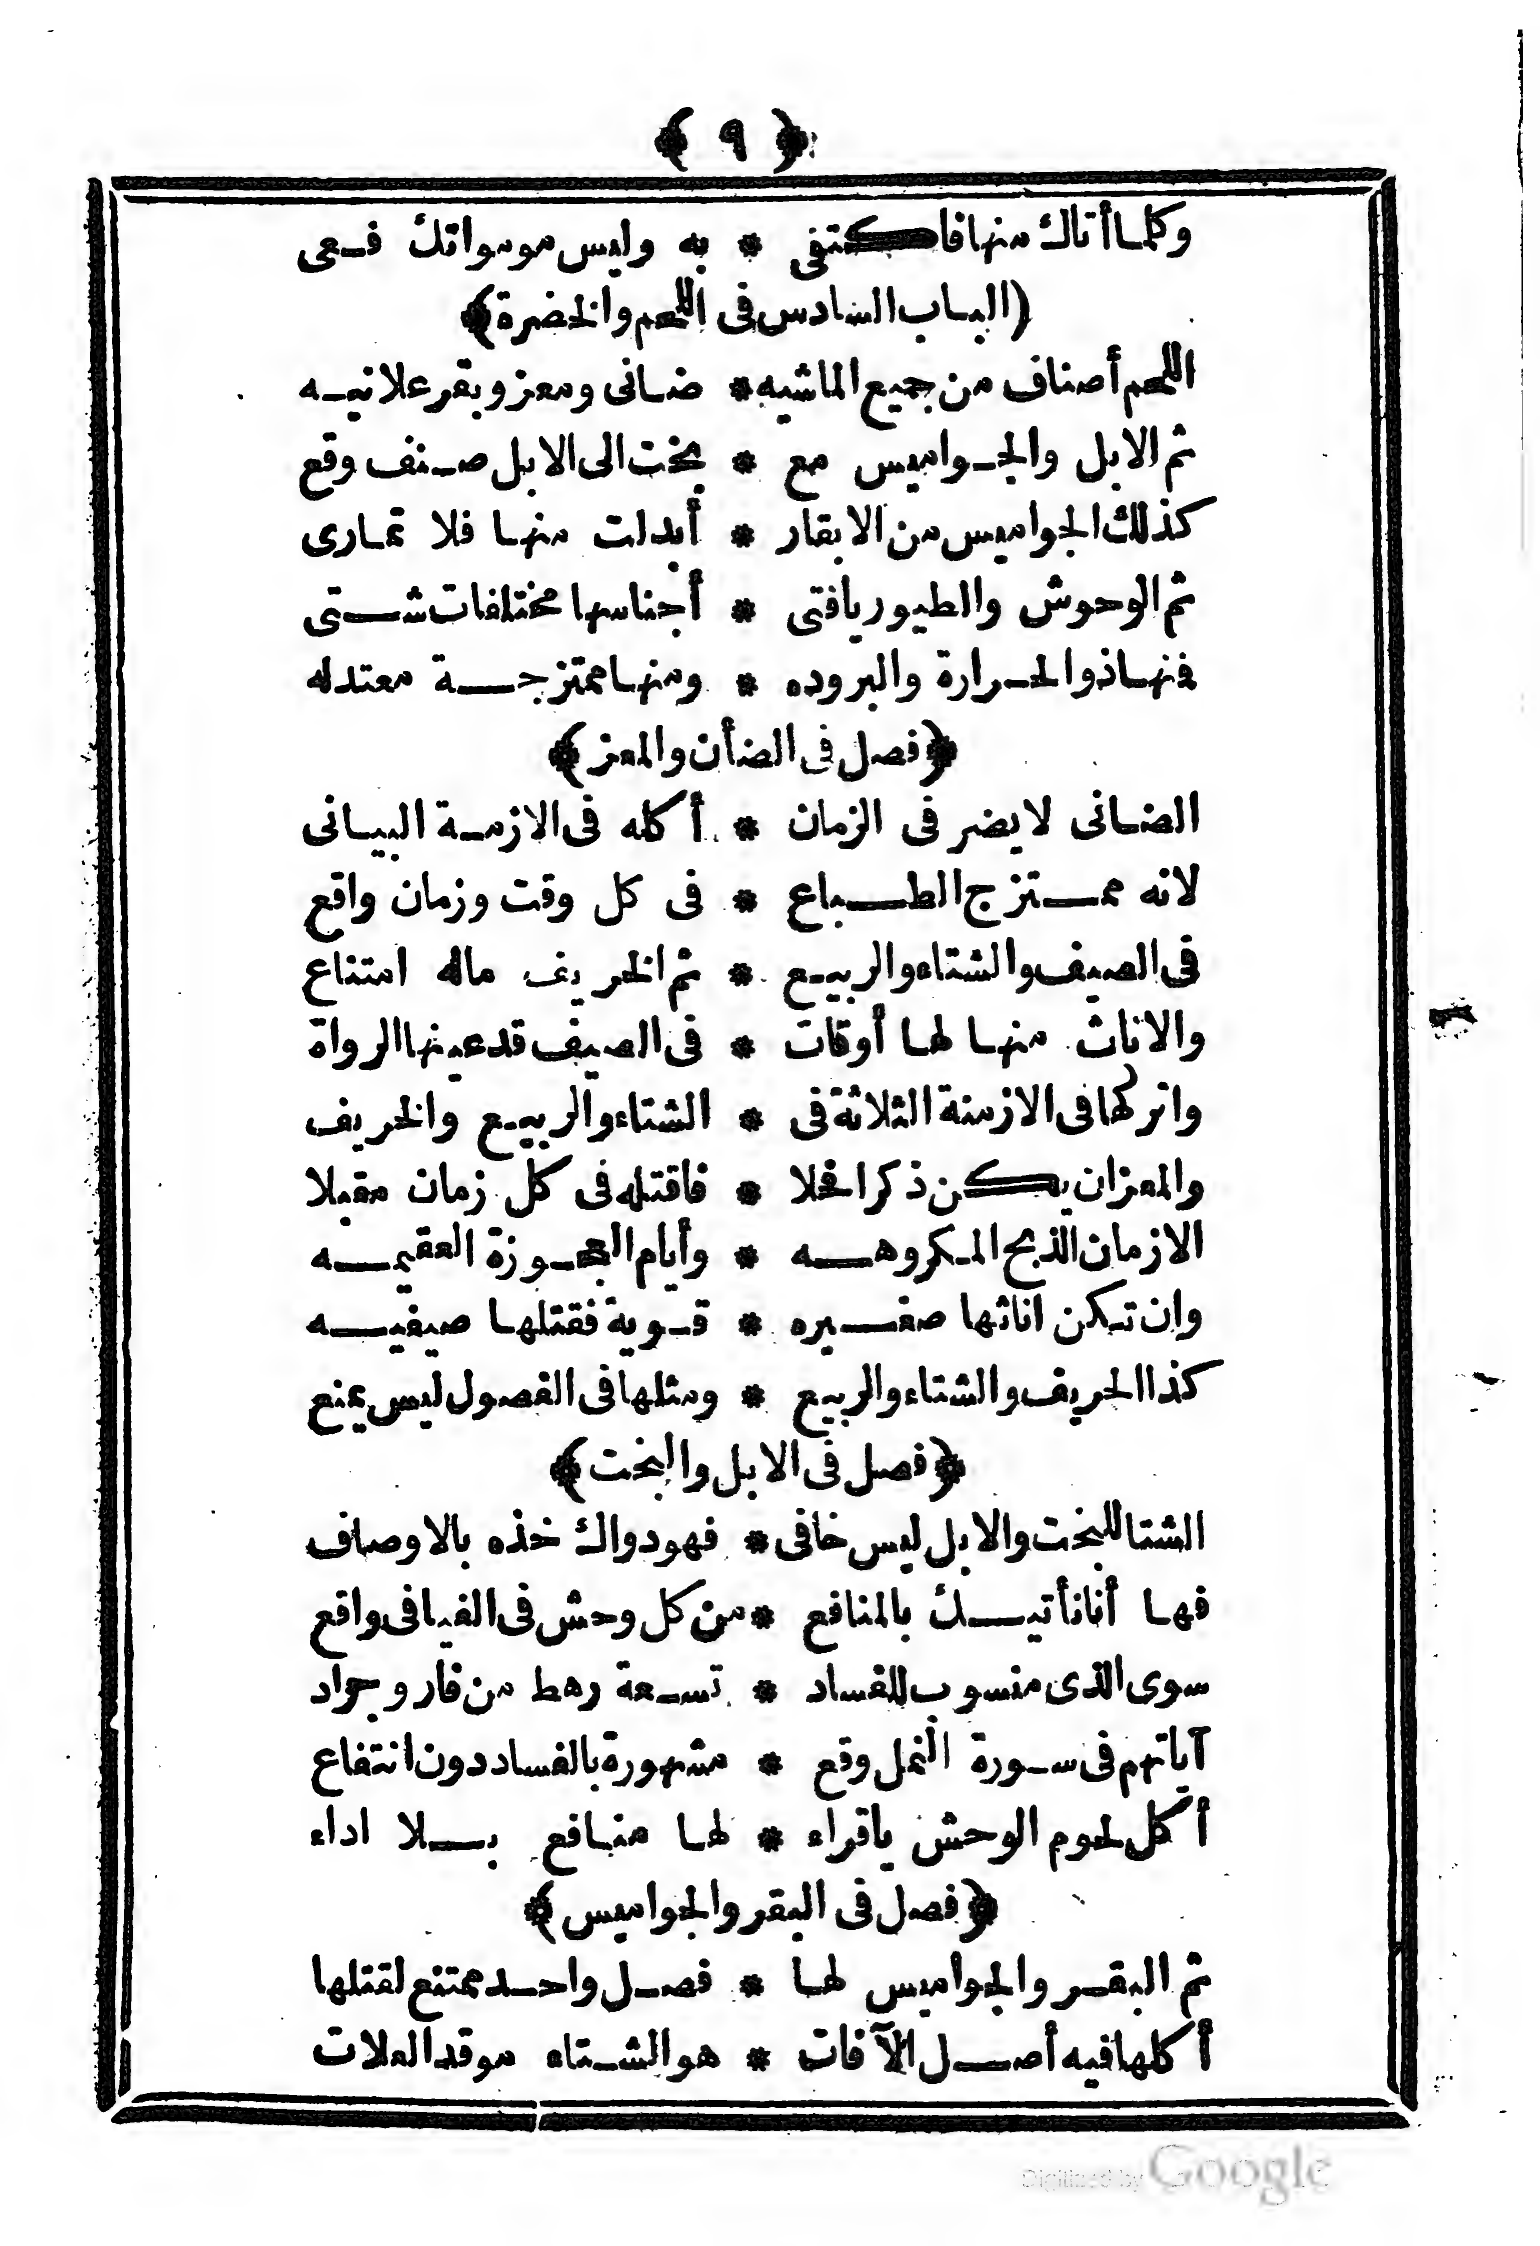 ﴿ ٩ ﴾
وكلما أتاك منها فاكتفى * به وليس موسواتك فعى
﴿الباب السادس فى اللحم والخضرة﴾
اللحم أصناف من جميع الماشيه * ضانى ومعز وبقر علانيه
ثم الابل والجواميس مع * بخت الى الابل صنف وقع
كذلك الجواميس من الابقار * أبدلت منها فلا تمارى
ثم الوحوش والطيور يافتى * أجناسها مختلفات شتى
فنها ذوالحرارة والبروده * ومنها ممتزجة معتدله
﴿فصل فى الضأن والمعز﴾
الضانى لا يضر فى الزمان * أكله فى الازمة البيانى
لانه ممتزج الطباع * فى كل وقت وزمان واقع
فى الصيف والشتاء والربيع * ثم الخريف ماله امتناع
والاناث منها لها أوقات * فى الصيف قد عينها الرواة
واتركها فى الازمنة الثلاثة فى * الشتاء والربيع والخريف
والمعزان يكن ذكرا فحلا * فاقتله فى كل زمان مقبلا
الازمان الذبح المكروهه * وأيام العجوزة العقيمه
وان تكن اناثها صغيره * قوية فقتلها صيفيه
كذا الخريف والشتاء والربيع * ومثلها فى الفصول ليس يمنع
﴿فصل فى الابل والبخت﴾
الشتا للبخت والابل ليس خافى * فهودواك خذه بالاوصاف
فها أنا نأتيك بالمنافع * من كل وحش فى الفيافى واقع
سوى الذى منسوب للفساد * تسعة رهط من فار وجراد
آياتهم فى سورة النمل وقع * مشهورة بالفساد دون انتفاع
أكل لحوم الوحش ياقراء * لها منافع بلا اداء
﴿فصل فى البقر والجواميس﴾
ثم البقر والجواميس لها * فصل واحد ممتنع لقتلها
أكلها فيه أصل الآفات * هو الشتاء موقد العلات
Digitized by Google